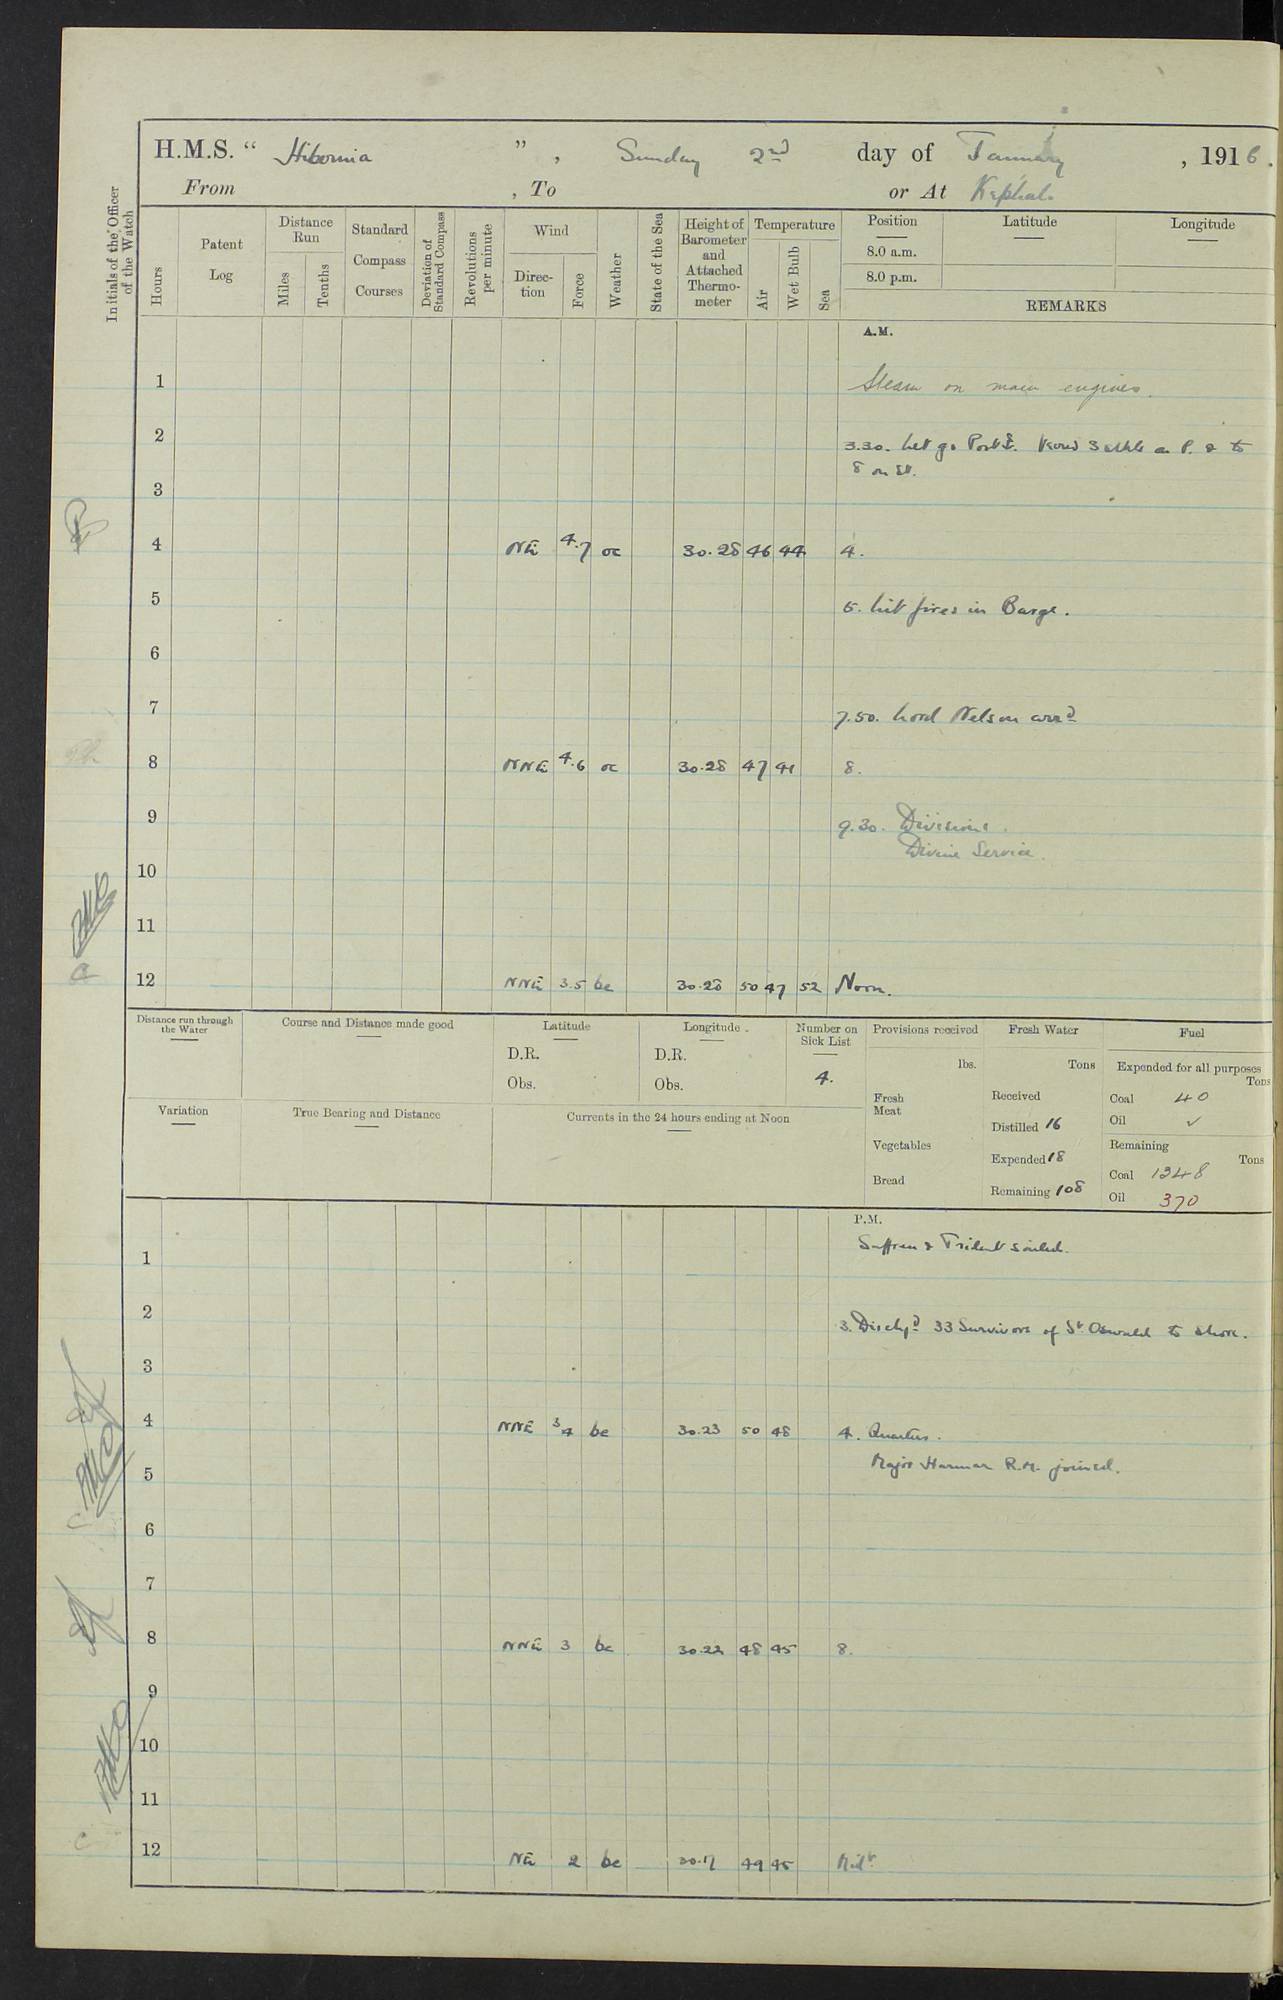 H.M.S. “ Hibernia ” , Sunday 2nd day of January , 1916.
From , To or At Kephalo
Initials of the Officer of the Watch
Hours
Patent Log
Distance Run
Miles
Tenths
Standard Compass Courses
Deviation of Standard Compass
Revolutions per minute
Wind
Direction
Force
Weather
State of the Sea
Height of Barometer and Attached Thermometer
Temperature
Air
Wet Bulb
Sea
Position Latitude Longitude
8.0 a.m.
8.0 p.m.
REMARKS
A.M.
1 Steam on main engines.
2 3.30. Let go Port Veered 3 on P. & to
8 on St.
3
4 NE 4.7 oc 30.28 46 44 4.
5 5. Lit fires in Barge.
6
7 7.50. Lord Nelson arrd
8 NNE 4.6 oc 30.28 47 41 8.
9 9.30. Divisions.
Divine Service.
10
11
12 NNE 3.5 bc 30.28 50 47 52 Noon.
Distance run through the Water
Course and Distance made good
Latitude
D.R.
Obs.
Longitude
D.R.
Obs.
Number on Sick List
4.
Provisions received
lbs.
Fresh Meat
Vegetables
Bread
Fresh Water
Tons
Received
Distilled 16
Expended 18
Remaining 108
Fuel
Expended for all purposes
Tons
Coal 40
Oil ✓
Remaining
Tons
Coal 1348
Oil 370
Variation
True Bearing and Distance
Currents in the 24 hours ending at Noon
P.M.
Suffren & Trident sailed.
1
2 3. Dischgd 33 Survivors of St Oswald to shore.
3
4 NNE 3 4 bc 30.23 50 48 4. Quarters.
Major Harmar R.M. joined.
5
6
7
8 NNE 3 bc 30.22 48 45 8.
9
10
11
12 NE 2 bc 30.17 49 45 Midt